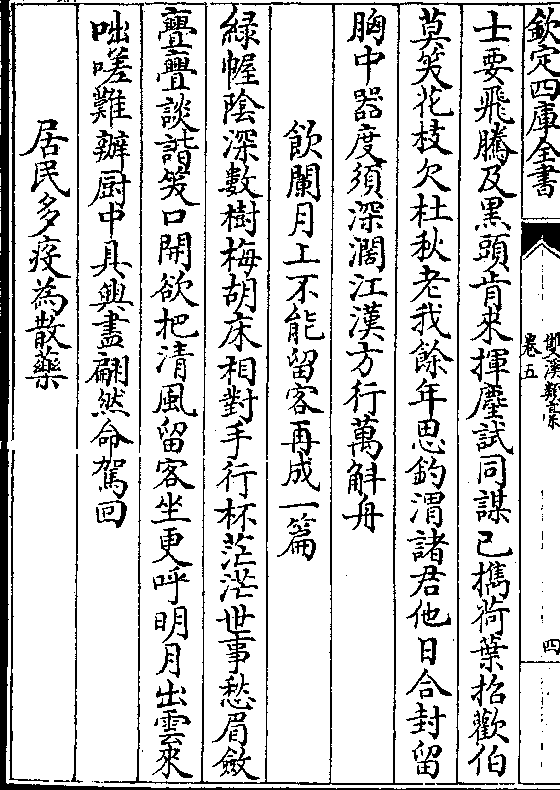 欽定四庫全書
雙溪類稾
卷五
四
士要飛騰及黒頭肯來揮麈試同謀已擕荷葉招歡伯
莫笑花枝欠杜秋老我餘年思釣渭諸君他日合封留
胸中器度須深濶江漢方行萬斛舟
飲闌月上不能留客再成一篇
緑幄陰深數樹梅胡床相對手行杯茫茫世事愁眉斂
亹亹談諧笑口開欲把清風留客坐更呼明月出雲來
咄嗟難辦厨中具興盡翩然命駕回
居民多疫為散藥